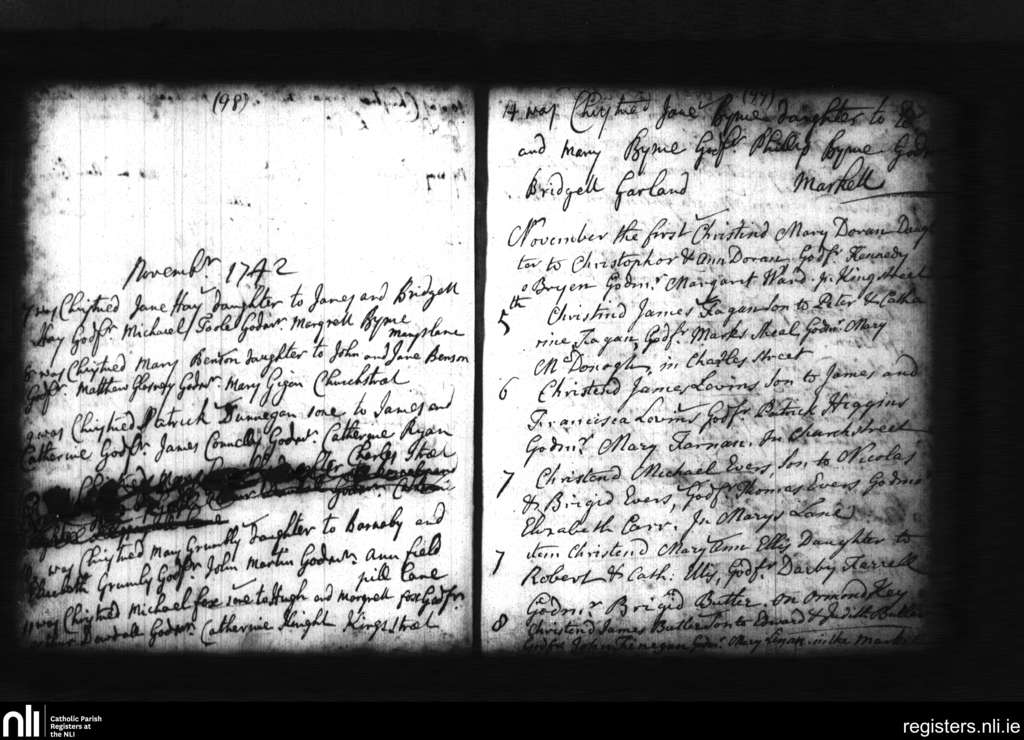 (98)
Novembr 1742
7 was Chrisned Jane Hay daughter to James and Bridgett
Hay Godfr. Michael Toole Godmr. Margrett Byrne
maryslane
8 was Chrisned Mary Benson daughter to John and Jane Benson
Godfr. Matthew Godmr. Mary Gigan Churchstrat
9 was Chrisned Patrick Dunnegan sone to James and
Catherine Godfr. James Connelly Godmr. Catherine Ryan
Charles Street
was Chrisned Mary Grumly daughter to Barnaby and
Elizabeth Grumly Godfr. John Martin Godmr. Ann field
pill Lane
11 was Chrisned Michael fox sone to Hugh and Margrett fox Godfr.
Godmr. Catherine Knight Kings Street
14 was Chrisned Jane Byrne daughter to
and Mary Byrne Godfr. Phillip Byrne
Bridgett Garland Markett
November the first Christind Mary Doran Daugh
ter to Christophor & Ann Doran, Godfr. Kennedy
o Bryen Godmr. Margaret Ward. in King street
5th Christind James Fagan Son to Peter & Catha
rine Fagan, Godfr. Marks Neal, Godmr. Mary
Mc Donogh, in Charles street
6 Christend James Lovins Son to James and
Francisca Lovins, Godfr. Patrick Higgins
Godmr. Mary Farnan. In Church street
7 Christend Michael Evers, Son to Nicolas
& Brigid Evers, Godfr. Thomas Evers, Godmr.
Elizabeth Carr. In Marys Lane
7 item Christend Mary Ann Ellis Daughter to
Robert & Cath. Ellis, Godfr. Darby Farrell
Godmr. Brigid Butler. on Ormond Key
8 Christend James Butler Son to Edward & Judith Butler
Godfr. John Finegan Godmr. Mary in the Market
nli
Catholic Parish
Registers at
the NLI
registers.nli.ie